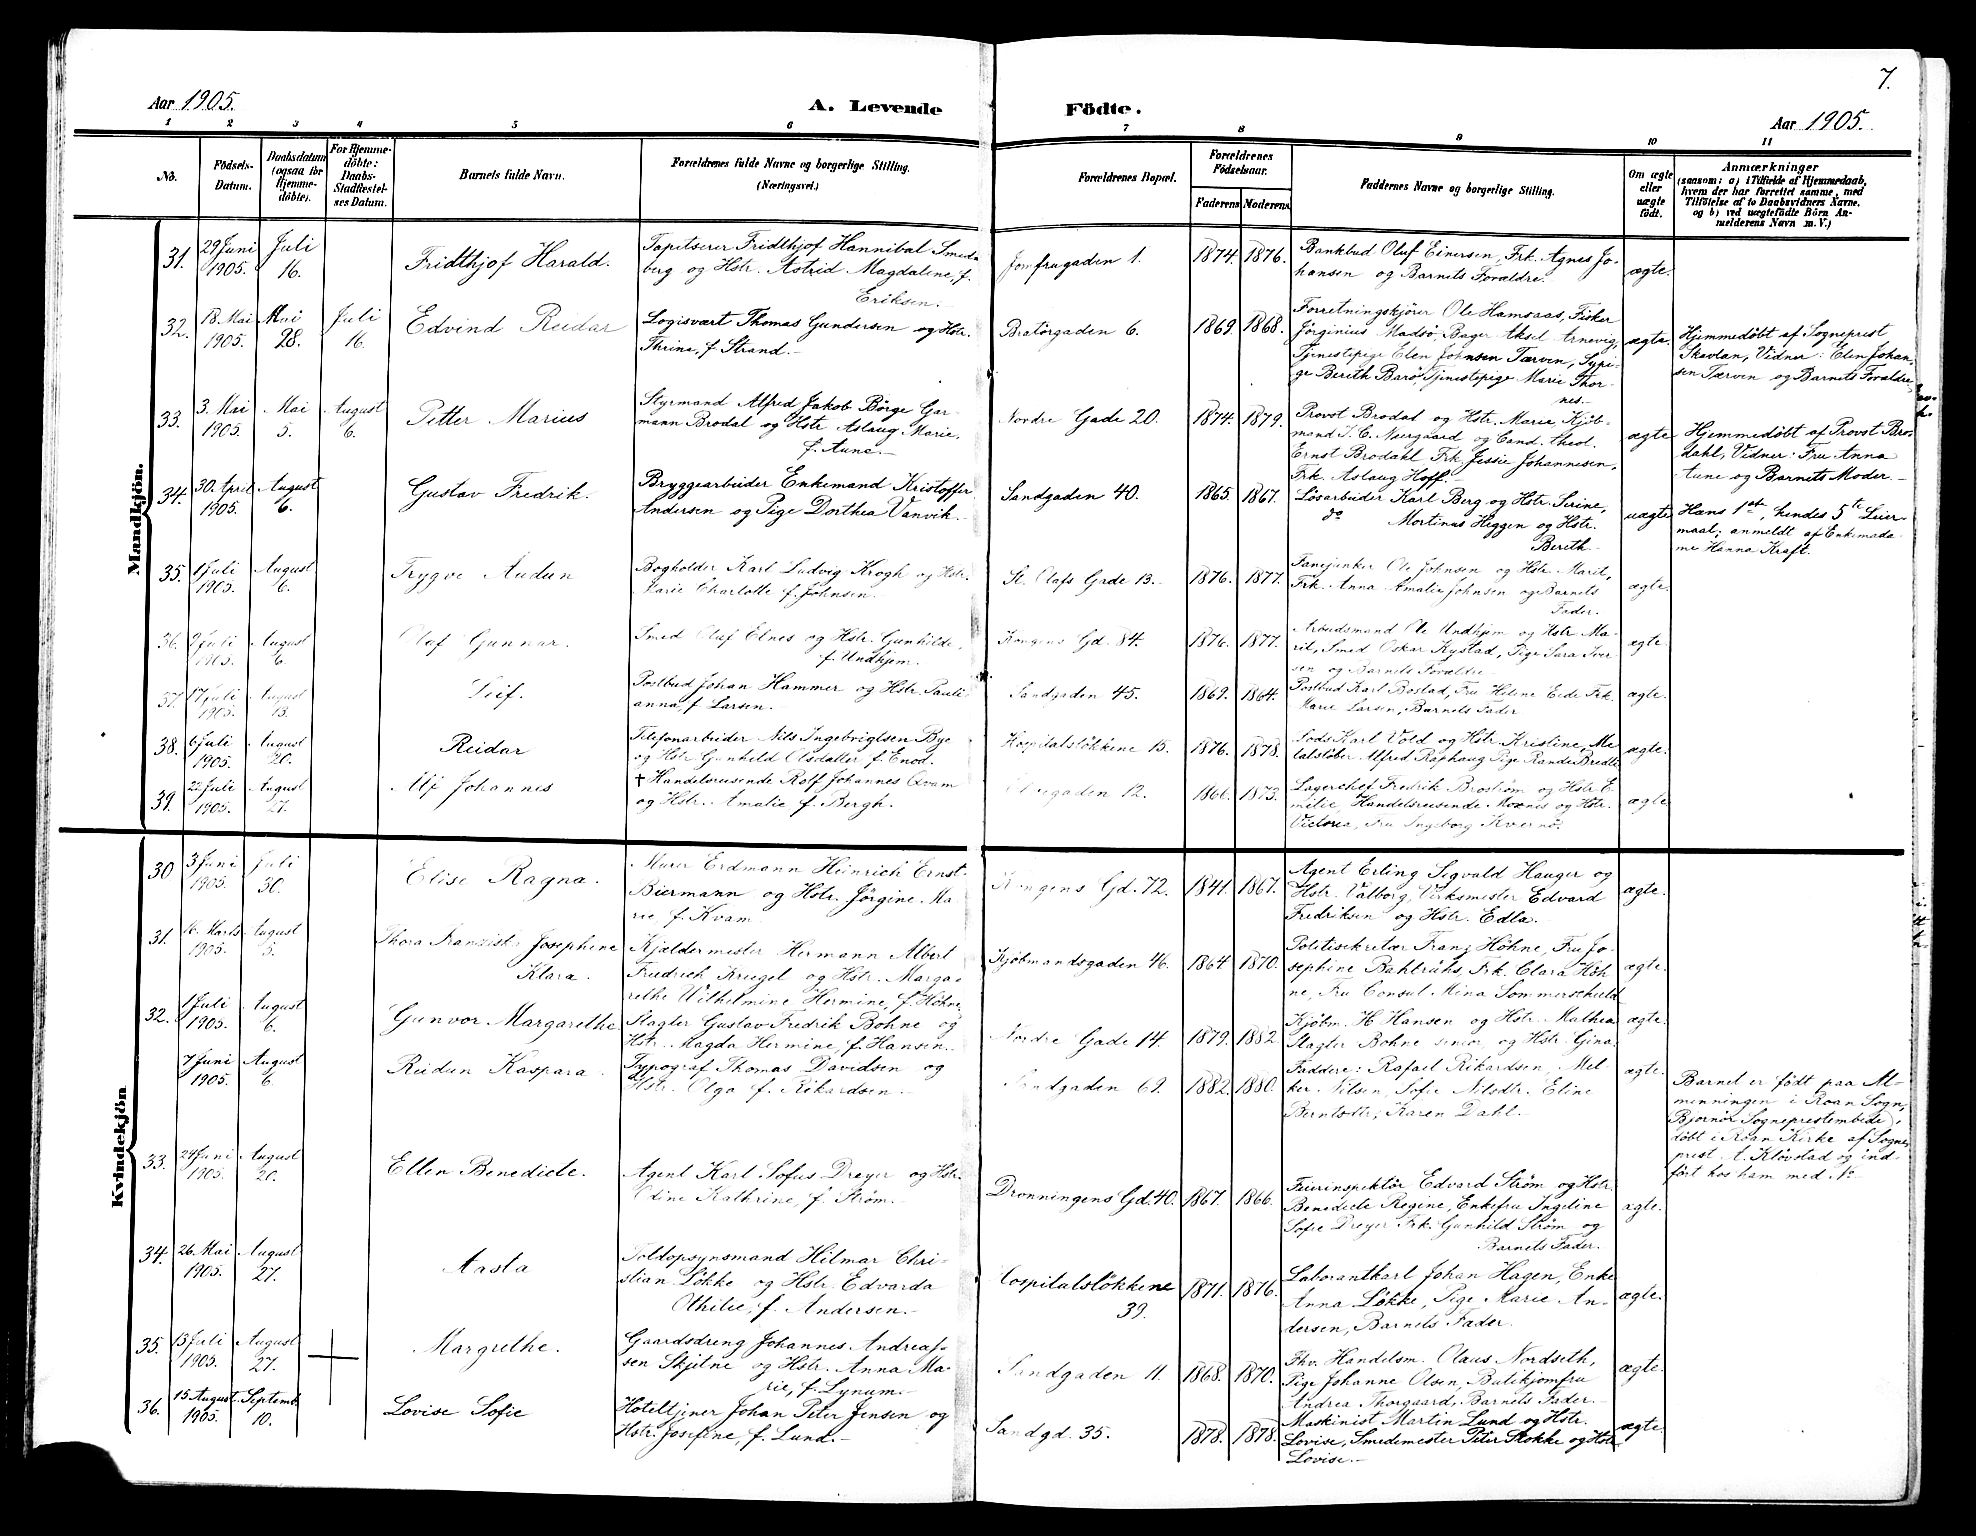 7.
Aar 1905.
A. Levende Födte.
Aar 1905.
1 2 3 4 5 6 7 8 9 10 11
No.
Födsels-
Datum.
Daabsdatum
(ogsaa for
Hjemme-
döbte).
For Hjemme-
döbte:
Daabs-
Stadfæstel-
ses Datum.
Barnets fulde Navn.
Forældrenes fulde Navne og borgerlige Stilling.
(Næringsvei.)
Forældrenes Bopæl.
Forældrenes
Födselsaar.
Faderens
Moderens
Faddernes Navne og borgerlige Stilling.
Om ægte
eller
uægte
født.
Anmærkninger
(saasom: a) i Tilfælde af Hjemmedaab,
hvem der har forrettet samme, med
Tilføielse af to Daabsvidners Navne.
og b) ved uægtefödte Börn An-
melderens Navn m. V.)
Mandkjön.
31.
29 Juni
1905.
Juli
16.
Fridthjof Harald.
Tapetserer Fridthjof Hannibal Smeda
berg og Hstr. Astrid Magdaline, f.
Eriksen.-
Jomfrugaden 1.
1874.
1876.
Bankbud Oluf Einersen, Frk. Agnes Jo-
hansen og Barnets Forældre.
ægte.
32.
18. Mai
1905.
Mai
28.
Juli
16.
Edvind Reidar
Logisvært Thomas Gundersen og Hstr.
Thrine, f. Strand.-
Bratörgaden 6.
1869.
1868.
Forretningskjörer Ole Hamsaas, Fisker
Jörginius Madsö, Bager Aksel Arnevig,
Tjenestepige Elen Johnsen Tærvin, Sypi-
ge Berith Barö, Tjenestepige Marie Thor-
nes.-
ægte.
Hjemmedøbt af Sogneprest
Skavlan, Vidner: Elen Johan-
sen Tærvin og Barnets Forældre.
33.
3. Mai
1905.
Mai
5.
August
6.
Petter Marius
Styrmand Alfred Jakob Börge Gar-
mann Brodal og Hstr Aslaug Marie,
f. Aune.-
Nordre Gade 20.
1874.
1879.
Provst Brodal og Hstr. Marie Kjöb-
mand I. C. Neergaard og Cand. theol.
Ernst Brodahl Frk Jessie Johannesen,
Frk. Aslaug Hoff.-
ægte
Hjemmedøbt af Provst Bro-
dahl, Vidner: Fru Anna
Aune og Barnets Moder.-
34.
30. April
1905.
August
6.
Gustav Fredrik.
Bryggearbeider Enkemand Kristoffer
Andersen og Pige Dorthea Vanvik.-
Sandgaden 40.
1865.
1867.
Løsarbeider Karl Berg og Hstr. Serine,
do Mortinus Heggen og Hstr.
Berith.-
uægte
Hans 1ste, hendes 5te Leier-
maal; anmeldt af Enkemada-
me Hanna Kraft.
35.
1 Juli
1905.
August
6.
Trygve Audun
Bogholder Karl Ludvig Krogh og Hstr.
Marie Charlotte f. Johnsen.-
St. Olafs Gade 13.-
1876.
1877.
Fanejunker Ole Johnsen og Hstr. Marit,
Frk. Anna Amalie Johnsen og Barnets
Fader.
ægte.
36.
9 Juli
1905.
August
6.
Olaf Gunnar.
Smed Oluf Elnes og Hstr. Gunhilde,
f. Undhjem.
Kongens Gd. 84.
1876.
1877.
Arbeidsmand Ole Undhjem og Hstr Ma-
rit, Smed Oskar Kystad, Pige Sara Iver
sen og Barnets Forældre
ægte.
37.
17, Juli
1905.
August
13.
Leif.
Postbud Johan Hammer og Hstr. Pauli
anna, f Larsen.-
Sandgaden 45.
1869.
1864.
Postbud Karl Bostad, Fru Heline Eide Frk.
Marie Larsen, Barnets Fader
ægte.
38.
6 Juli
1905.
August
20.
Reidar
Telefonarbeider Nils Ingebrigtsen Bye
og Hstr Gunhild Olsdatter f. Enod.
Hospitalsløkkene 15.
1876.
1878.
Lods Karl Vold og Hstr Kristine, Me-
talstøber Alfred Raphaug Pige Randi Bredli
ægte.
39.
22 Juli
1905.
August
27.
Alf Johannes
+ Handelsreisende Rolf Johannes Qvam
og Hstr. Amalie f. Bergh.
12.
1873.
Lagerchef Fredrik Broström og Hstr. E-
milie Handelsreisende Moxnis og Hstr.
Victoria, Fru Ingeborg Kvernø.
ægte
Kvindekjön
30
3 Juni
1905.
Juli
30.
Elise Ragna.
Murer Erdmann Heinrich Ernst
Biermann og Hstr. Jörgine Ma-
rie, f. Kvam.
Kongens Gd. 72.
1841.
1867.
Agent Erling Sigvald Hauger og
Hstr. Valborg, Virksmester Edvard
Fredriksen og Hstr. Edla.
ægte.
31.
16. Marts
1905.
August
5.
Thora Franziska Josephine
Klara.
Kjældermester Hermann Albert
Friedrich Kriegel og Hstr. Marga-
rethe Wilhelmine Hermine, f. Höhne,
Kjøbmandsgaden 46.
1864
1870.
Politisekretær Franz Höhne, Fru Jo-
sephine Bahlrühs, Frk. Clara Höh-
ne, Fru Consul Mina Sommerschield
ægte.
32.
1 Juli
1905.
August
6.
Gunvor Margarethe
Slagter Gustav Fredrik Bohne og
Hstr. Magda Hermine, f. Hansen.-
Nordre Gade 14.
1879.
1882.
Kjöbm. H. Hansen og Hstr. Mathea
Slagter Bohne senior og Hstr. Gina
ægte.
7 Juni
1905.
August
6.
Reidun Kaspara.
Typograf Thomas Davidsen og
Hstr. Olga f. Rikardsen.-
Sandgaden 69.
1882.
1880.
Faddere: Rafael Rikardsen, Mel-
ker. Nilsen, Sofie Nilsdtr. Eline
Berntsdtr, Karen Dahl.-
ægte.
Barnet er født paa Al-
menningen i Roan Sogn,
(Bjørnör Sogneprestembede),
døbt i Roan Kirke af Sogne-
prest A. Kløvstad og ind-
ført hos ham med No
33.
24 Juni
1905.
August
20.
Ellen Benedicte.
Agent Karl Sofus Dreyer og Hstr.
Odine Kathrine, f. Strøm.-
Dronningens Gd. 40.
1867.
1866.
Feierinspektör Edvard Ström og Hstr.
Benedicte Regine, Enkefru Ingeline
Sofie Dreyer Frk. Gunhild Ström og
Barnets Fader.
ægte.
34.
26. Mai
1905.
August
27.
Aasta
Toldopsynsmand Hilmar Chri-
stian Løkke og Hstr. Edvarda
Othilie, f. Andersen.-
Hospitalsløkkene
39.
1871.
1876.
Laborantkarl Johan Hagen, Enke
Anna Løkke, Pige Marie An-
dersen, Barnets Fader.
ægte.
35.
13 Juli
1905.
August
27.
Margrethe.
Gaardsdreng Johannes Andreas-
sen Skjelne og Hstr. Anna Ma-
rie, f. Lynum.-
Sandgaden 11.
1868.
1870.
Fhv. Handelsm. Claus Nordseth,
Pige Johanne Olsen, Butikjomfru
Andrea Thorgaard, Barnets Fader.-
ægte.
36.
15 August
1905.
Septemb.
10.
Lovise Sofie
Hoteltjener Johan Peter Jensen og
Hstr. Josefine, f. Lund.-
Sandgd. 35.
1878.
1878.
Maskinist Martin Lund og Hstr.
Lovise, Smedemester Peter Stokke og Hstr
Lovise.-
ægte.